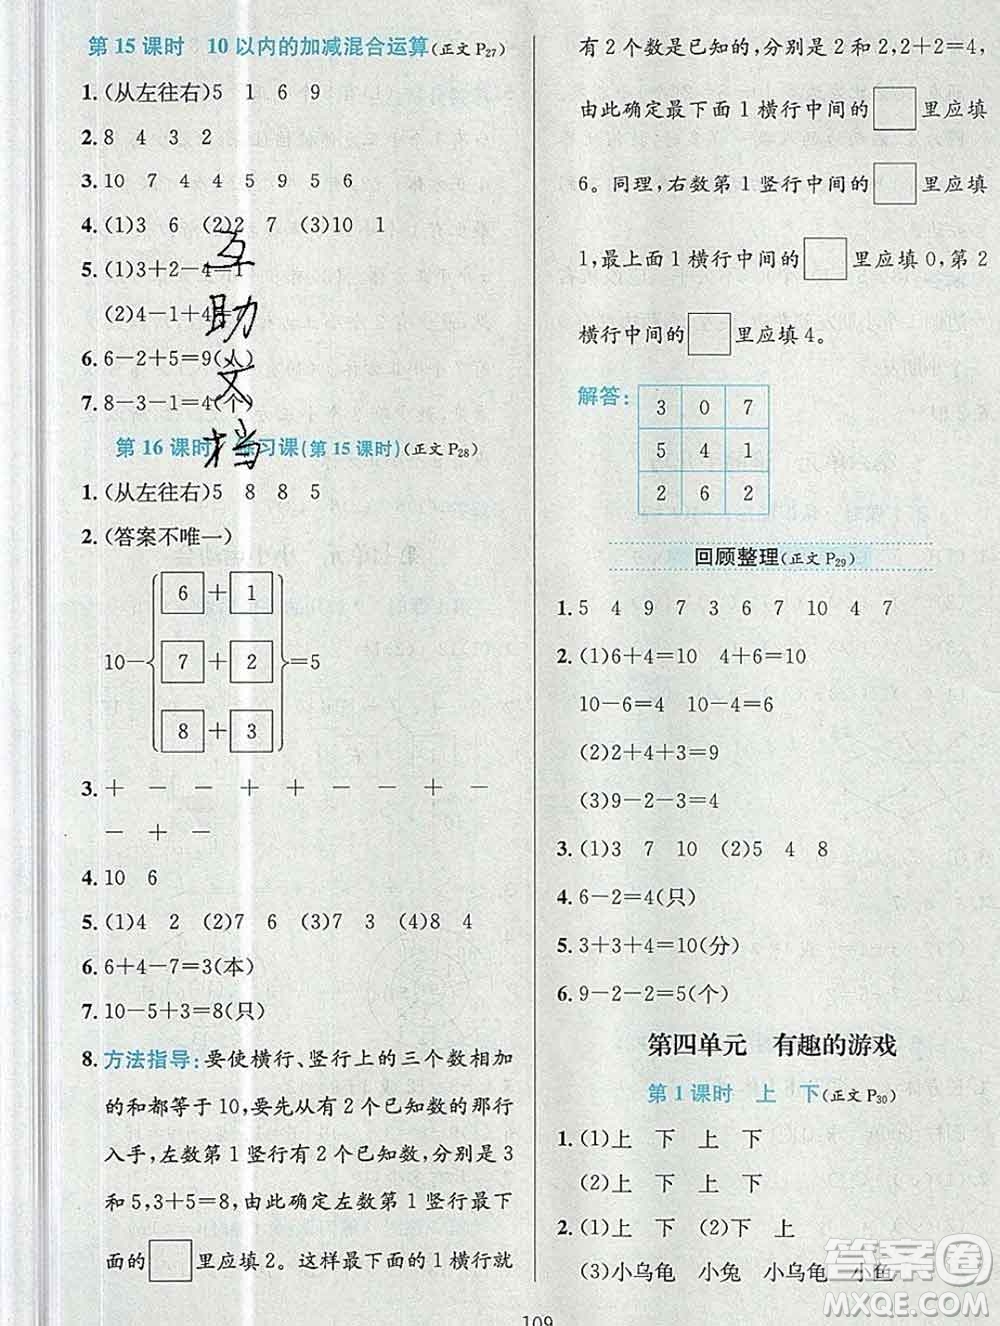 第 15 课时 10 以内的加减混合运算(正文 P27)
1. (从左往右)5 1 6 9
2. 8 4 3 2
3. 10 7 4 4 5 9 5 6
4. (1)3 6 (2)2 7 (3)10 1
5. (1)3+2-4=1
(2)4-1+4=
6. 6-2+5=9(人)
7. 8-3-1=4(个)
互助文档
第 16 课时 练习课(第 15 课时)(正文 P28)
1. (从左往右)5 8 8 5
2. (答案不唯一)
6+1
10- 7+2 =5
8+3
3. + - + - + - + - -
- + -
4. 10 6
5. (1)4 2 (2)7 6 (3)7 3 (4)8 4
6. 6+4-7=3(本)
7. 10-5+3=8(只)
8. 方法指导:要使横行、竖行上的三个数相加
的和都等于 10,要先从有 2 个已知数的那行
入手,左数第 1 竖行有 2 个已知数,分别是 3
和 5,3+5=8,由此确定左数第 1 竖行最下
面的□里应填 2。这样最下面的 1 横行就
有 2 个数是已知的,分别是 2 和 2,2+2=4,
由此确定最下面 1 横行中间的□里应填
6。同理,右数第 1 竖行中间的□里应填
1,最上面 1 横行中间的□里应填 0,第 2
横行中间的□里应填 4。
解答:
3 0 7
5 4 1
2 6 2
回顾整理(正文 P29)
1. 5 4 9 7 3 6 7 10 4 7
2. (1)6+4=10 4+6=10
10-6=4 10-4=6
(2)2+4+3=9
(3)9-2-3=4
3. (1)3 7 10 (2)5 4 8
4. 6-2=4(只)
5. 3+3+4=10(分)
6. 9-2-2=5(个)
第四单元 有趣的游戏
第 1 课时 上 下(正文 P30)
1. (1)上 下 上 下
(2)上 下 上 下
2. (1)上 下 (2)下 上
(3)小乌龟 小兔 小乌龟 小鱼
109
答案圈
MXQE.COM